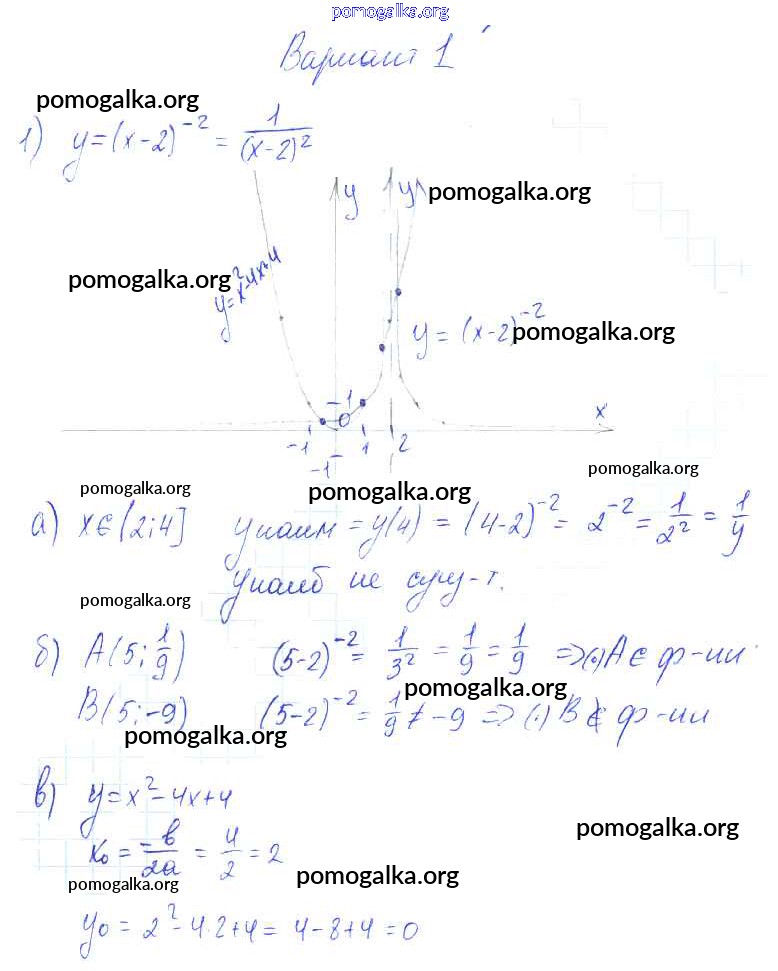 pomogalka.org
Вариант 1
pomogalka.org
1) y=(x-2)^{-2} = 1/(x-2)^2
y y pomogalka.org
pomogalka.org
y=x^2-4x+4
y = (x-2)^{-2}
pomogalka.org
x
-1 0 -1 1 2
-1
pomogalka.org
pomogalka.org pomogalka.org
а) x∈(2;4] yнаим = y(4) = (4-2)^{-2} = 2^{-2} = 1/2^2 = 1/4
yнаиб не сущ-т.
pomogalka.org
б) A(5; 1/9) (5-2)^{-2} = 1/3^2 = 1/9 = 1/9 => (·)A∈ ф-ии
pomogalka.org
B(5;-9) (5-2)^{-2} = 1/9 ≠ -9 => (·)B∉ ф-ии
pomogalka.org
в) y=x^2-4x+4
pomogalka.org
x₀ = -в/2a = 4/2 = 2
pomogalka.org pomogalka.org
y₀ = 2^2-4·2+4 = 4-8+4 = 0